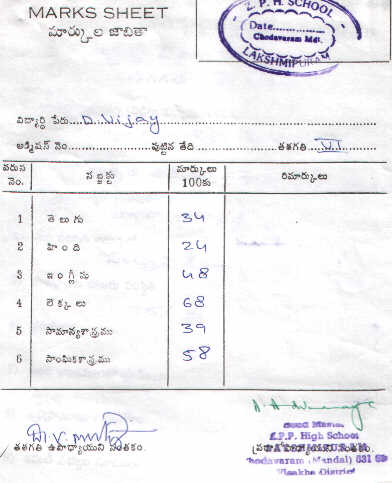 MARKS SHEET
మార్కుల జాబితా
Z. P. H. SCHOOL
Date
Chodavaram Mdl.
LAKSHMIPURAM
విద్యార్థి పేరు D. Vijay
అడ్మిషన్ నెం. పుట్టిన తేది తరగతి VI
వరుస నెం. సబ్జక్టు మార్కులు 100కు రిమార్కులు
1 తెలుగు 34
2 హింది 24
3 ఇంగ్లీషు 48
4 లెక్కలు 68
5 సామాన్యశాస్త్రము 39
6 సాంఘికశాస్త్రము 58
తరగతి ఉపాధ్యాయుని సంతకం.
Z.P.P. High School
(Mandal) 531
Visakha District